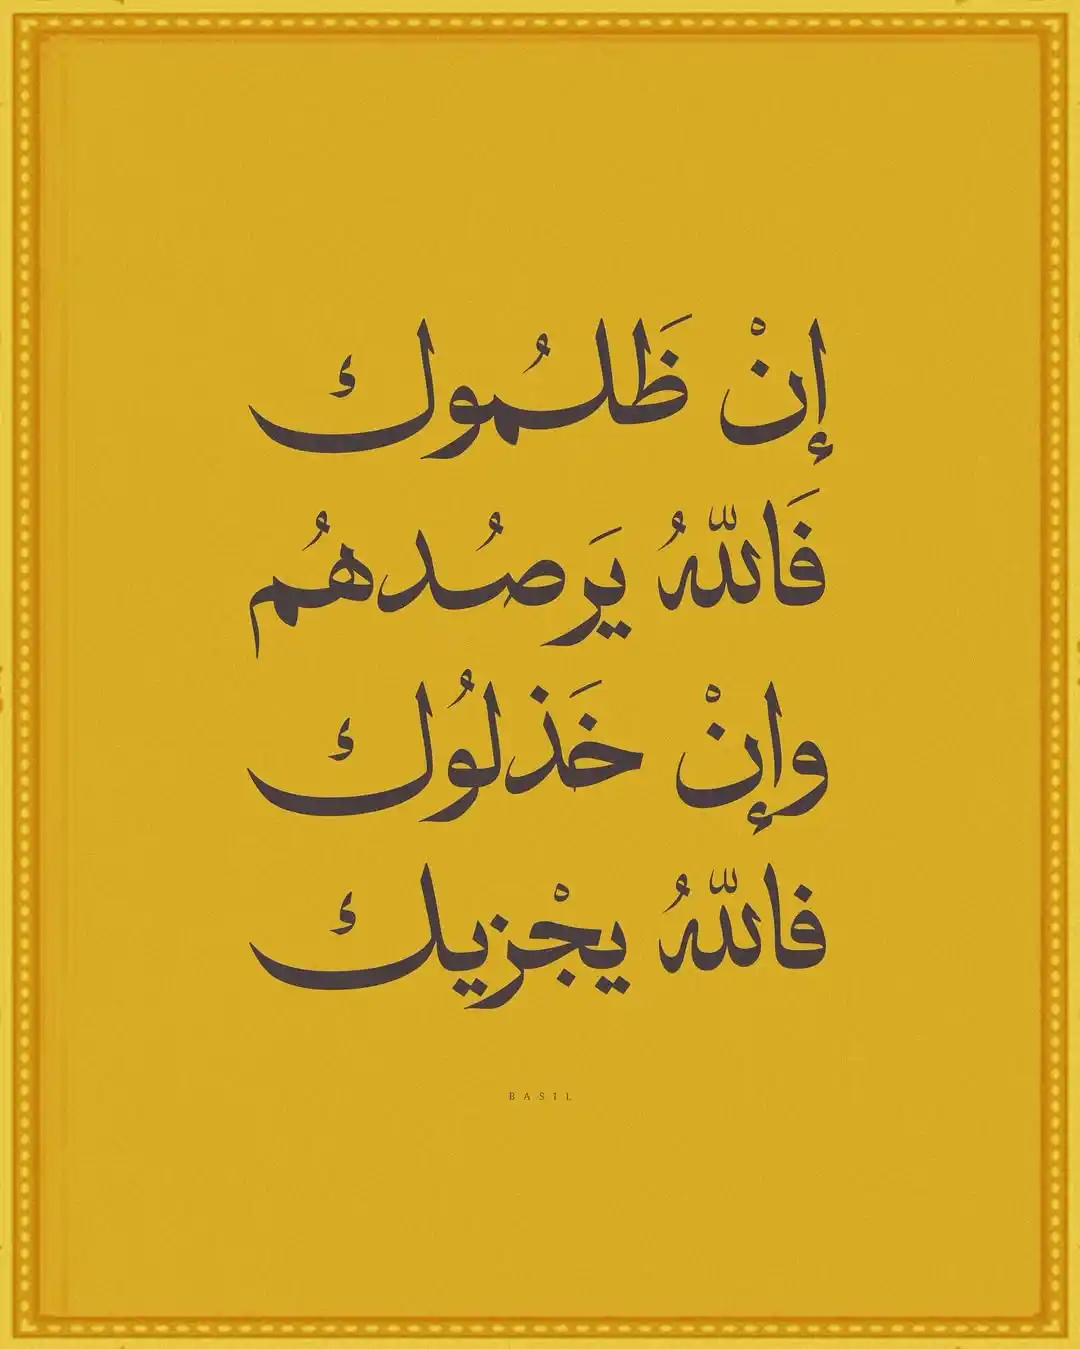 إنْ ظَلمُوك
فَاللّهُ يَرصُدهُم
وإنْ خَذلوُك
فاللّهُ يجْزيك
BASIL